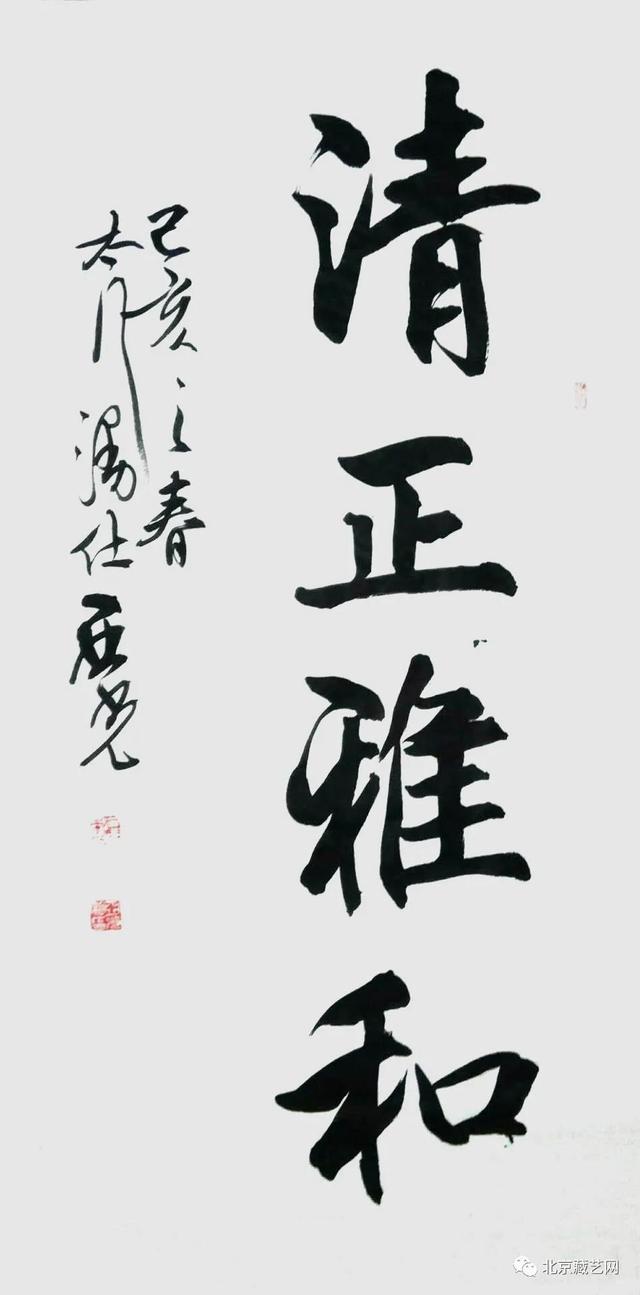 清正雅和
己亥之春
太行 仕
北京藏艺网